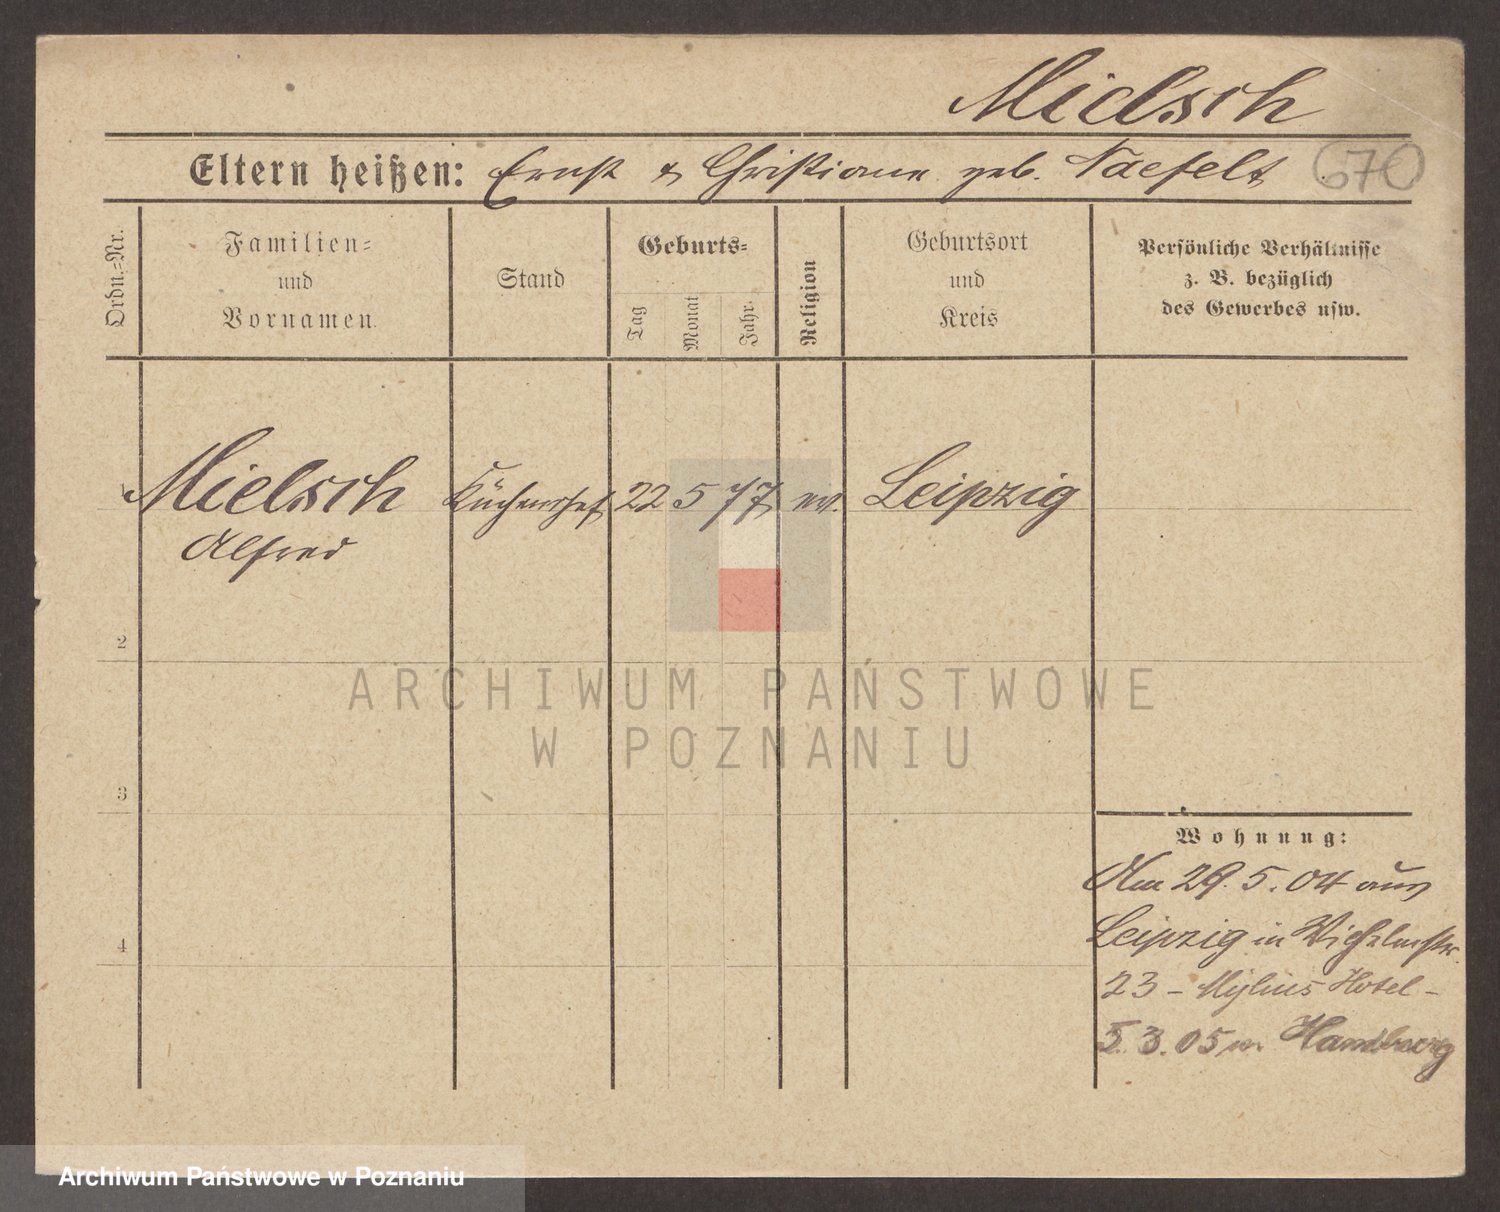 Mielsch
Eltern heißen: Ernst & Christiane geb. Naefelt
670
Ordn.=Nr.
Familien=
und
Vornamen.
Stand
Geburts=
Tag
Monat
Jahr.
Religion
Geburtsort
und
Kreis
Persönliche Verhältnisse
z. B. bezüglich
des Gewerbes usw.
Mielsch Küchenchef 22 5 77 ev. Leipzig
Alfred
2
3
4
Wohnung:
Am 29.5.04 aus
Leipzig in Wilhelmstr.
23 - Mylius Hotel -
5.3.05 n. Hamburg
ARCHIWUM PAŃSTWOWE
W POZNANIU
Archiwum Państwowe w Poznaniu